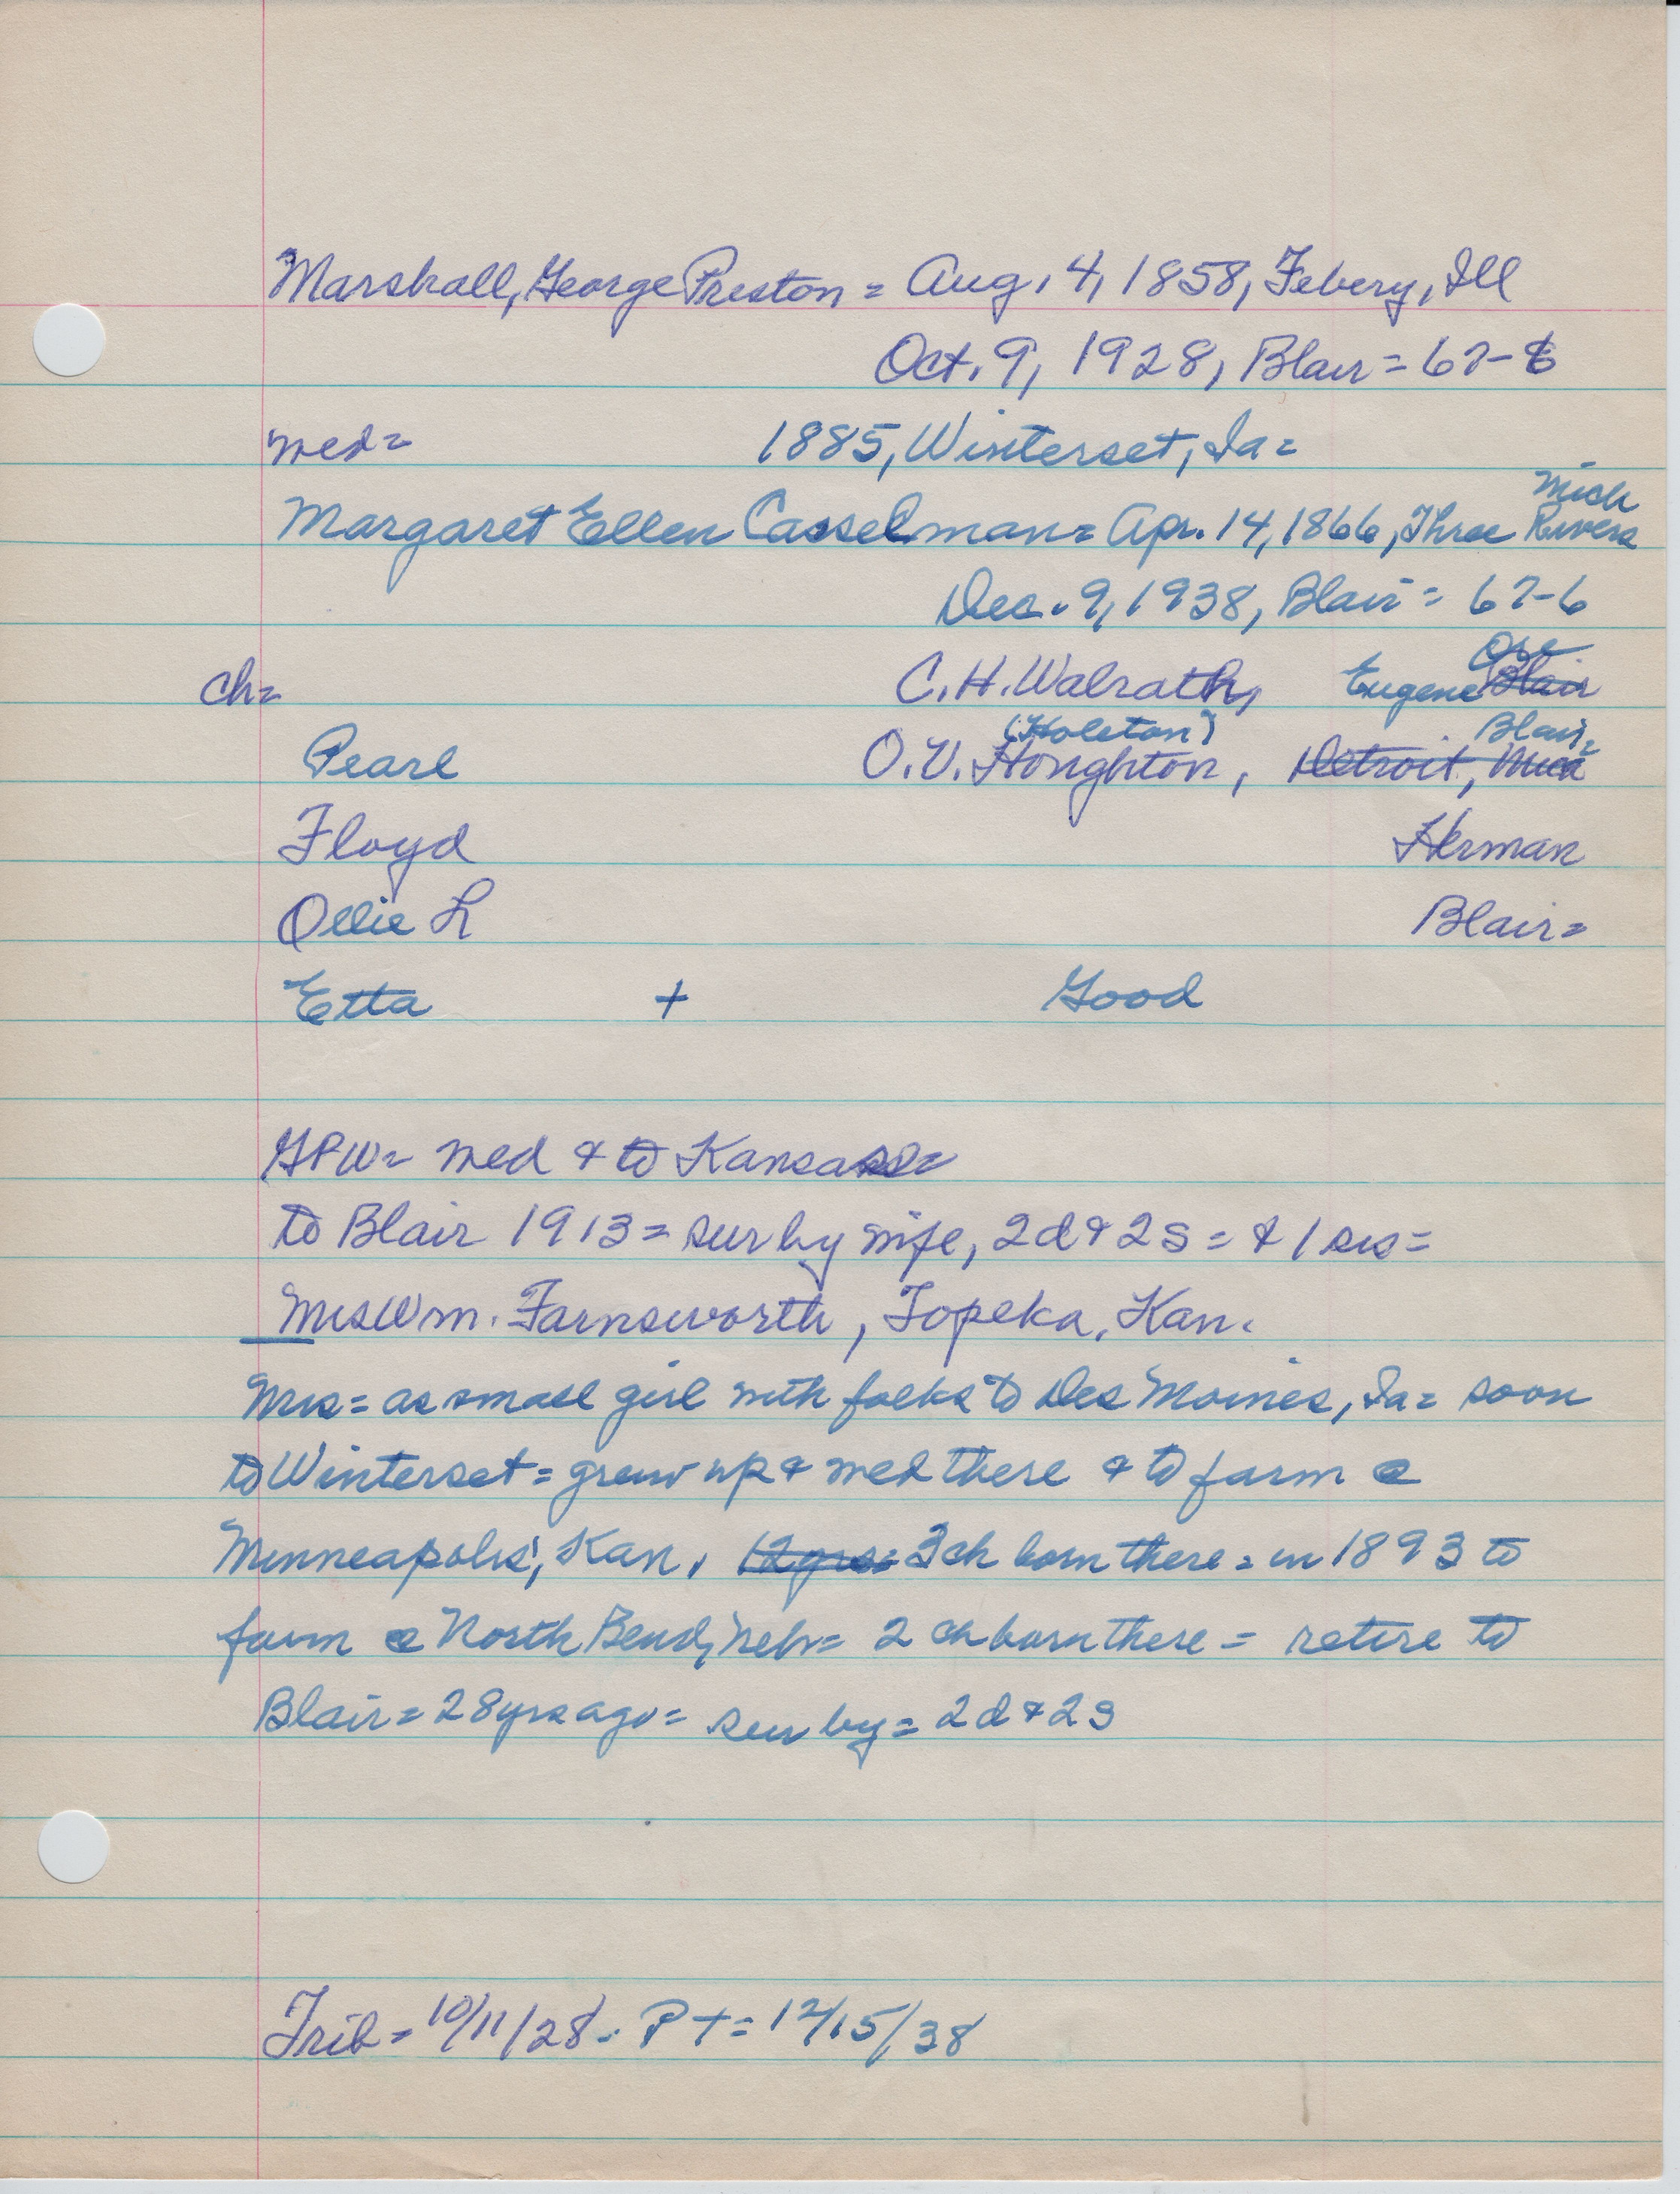 Marshall, George Preston = Aug. 4, 1858, Febery, Ill
Oct. 9, 1928, Blair = 67-6
med =
1885, Winterset, Ia =
Mich
Margaret Ellen Casselman = Apr. 14, 1866, Three Rivers
Dec. 9, 1938, Blair = 67-6
Ore
ch = C.H. Walrath, Eugene Blair
(Holeton) Blair =
Pearl O.V. Houghton, Detroit, Mich
Floyd Herman
Ollie L Blair =
Etta + Good
GPW = med & to Kansas =
to Blair 1913 = sur by wife, 2d & 2s = & 1 sis =
Mrs Wm. Farnsworth, Topeka, Kan.
Mrs = as small girl with folks to Des Moines, Ia = soon
to Winterset = grew up & med there & to farm @
Minneapolis, Kan, 12 yrs = 3 ch born there = in 1893 to
farm @ North Bend, Neb = 2 ch born there = retire to
Blair = 28 yrs ago = sur by = 2d & 2s
Trib = 10/11/28. PT = 12/15/38